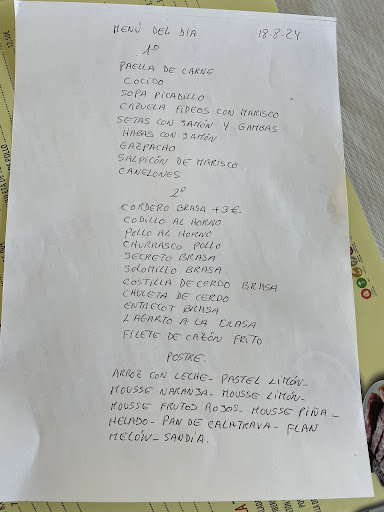 MENÚ DEL DÍA 18-8-24
1º
PAELLA DE CARNE
COCIDO
SOPA PICADILLO
CAZUELA FIDEOS CON MARISCO
SETAS CON JAMÓN Y GAMBAS
HABAS CON JAMÓN
GAZPACHO
SALPICÓN DE MARISCO
CANELONES
2º
CORDERO BRASA +3€.
CODILLO AL HORNO
POLLO AL HORNO
CHURRASCO POLLO
SECRETO BRASA
SOLOMILLO BRASA
COSTILLA DE CERDO BRASA
CHULETA DE CERDO
ENTRECOT BRASA
LAGARTO A LA BRASA
FILETE DE CAZÓN FRITO
POSTRE.
ARROZ CON LECHE- PASTEL LIMÓN-
MOUSSE NARANJA- MOUSSE LIMÓN-
MOUSSE FRUTOS ROJOS- MOUSSE PIÑA-
HELADO- PAN DE CALATRAVA- FLAN
MELÓN- SANDÍA.